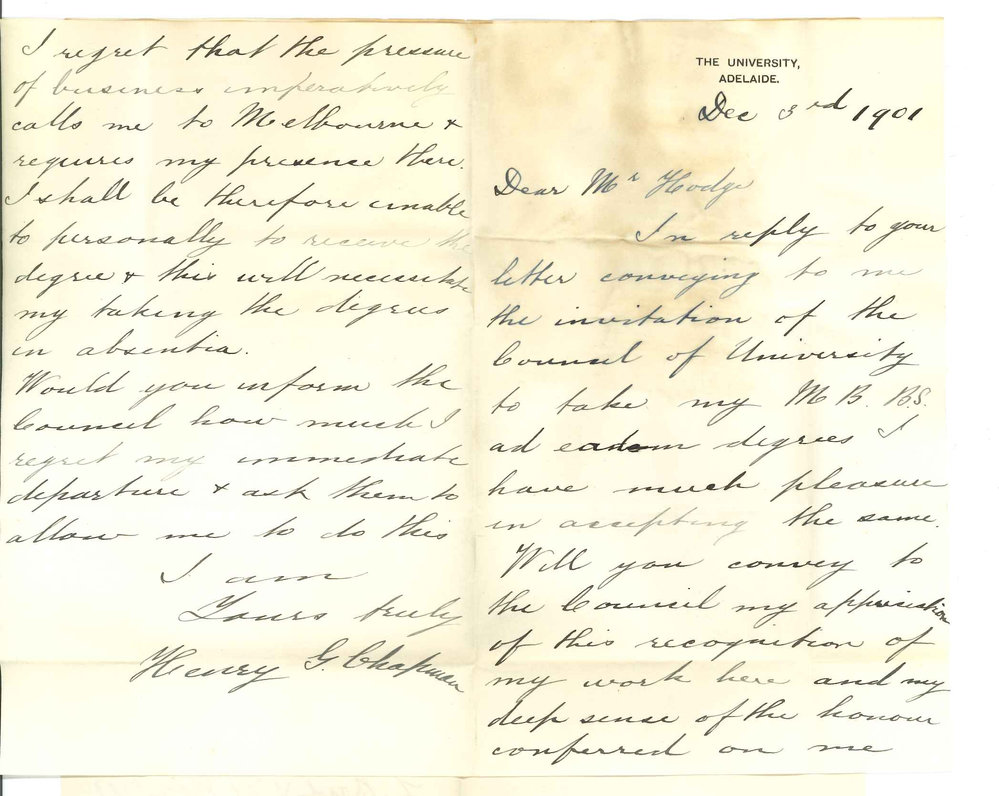 THE UNIVERSITY,
ADELAIDE.
Dec 3rd 1901
Dear Mr Hodge
In reply to your
letter conveying to me
the invitation of the
Council of University
to take my M B. B.S.
ad eadem degrees I
have much pleasure
in accepting the same.
Will you convey to
the Council my appreciation
of this recognition of
my work here and my
deep sense of the honour
conferred on me
I regret that the pressure
of business imperatively
calls me to Melbourne &
requires my presence there.
I shall be therefore unable
to personally to receive the
degree & this will necessitate
my taking the degrees
in absentia.
Would you inform the
Council how much I
regret my immediate
departure & ask them to
allow me to do this
I am
Yours truly
Henry G. Chapman